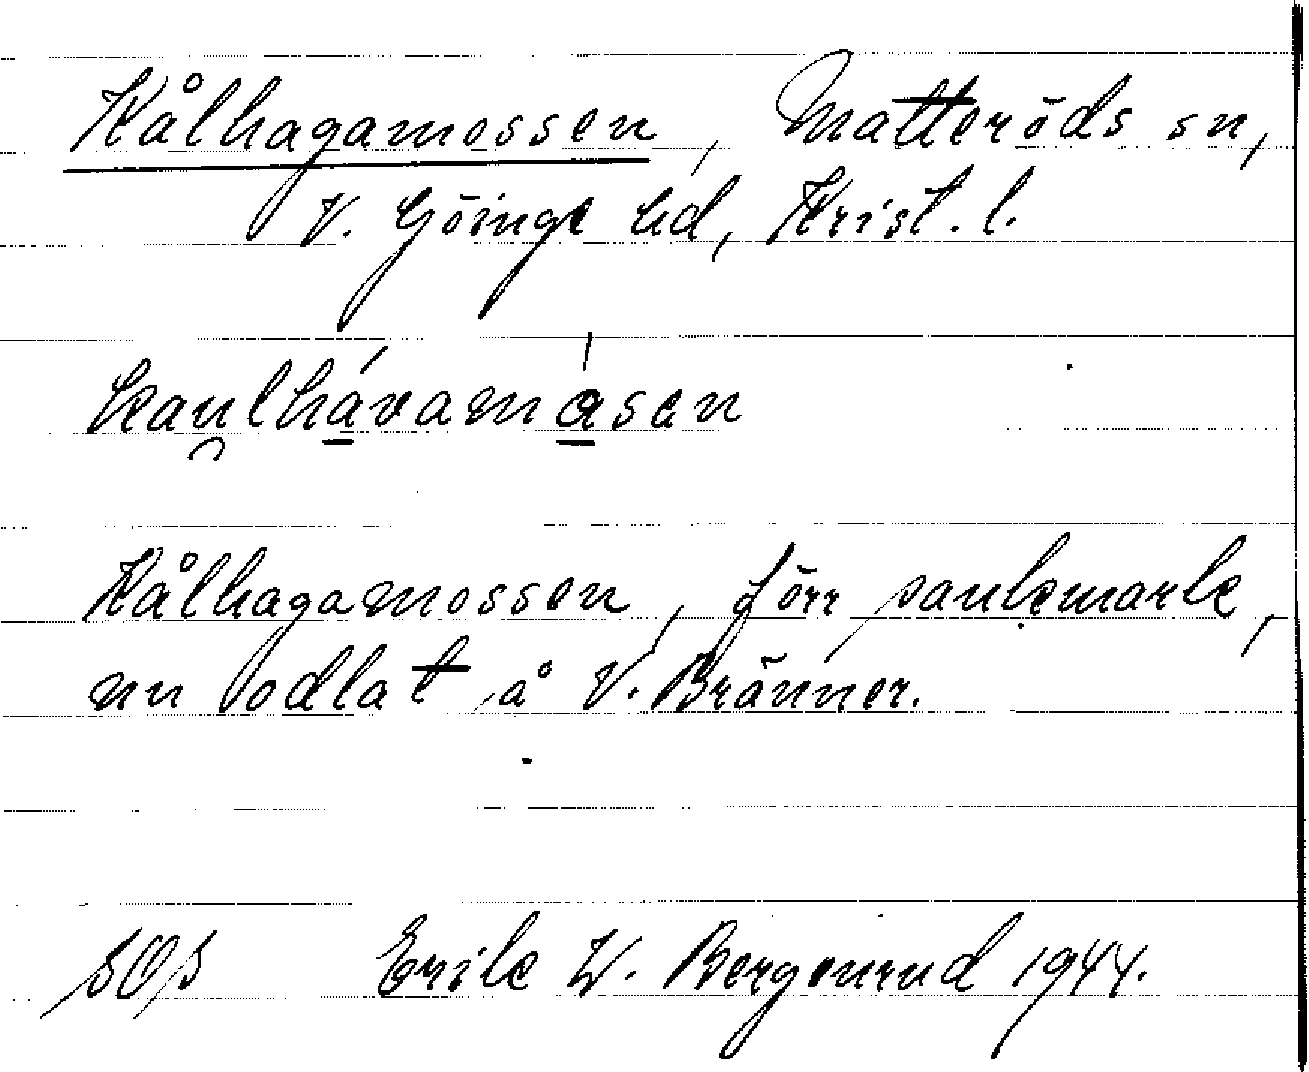 Kålhagamossen, Matteröds sn,
V. Göinge hd, Krist. l.
kau̯lhávamåsen
Kålhagamossen, förr sankmark,
nu odlat å V. Bränner.
SOS Erik W. 1944.